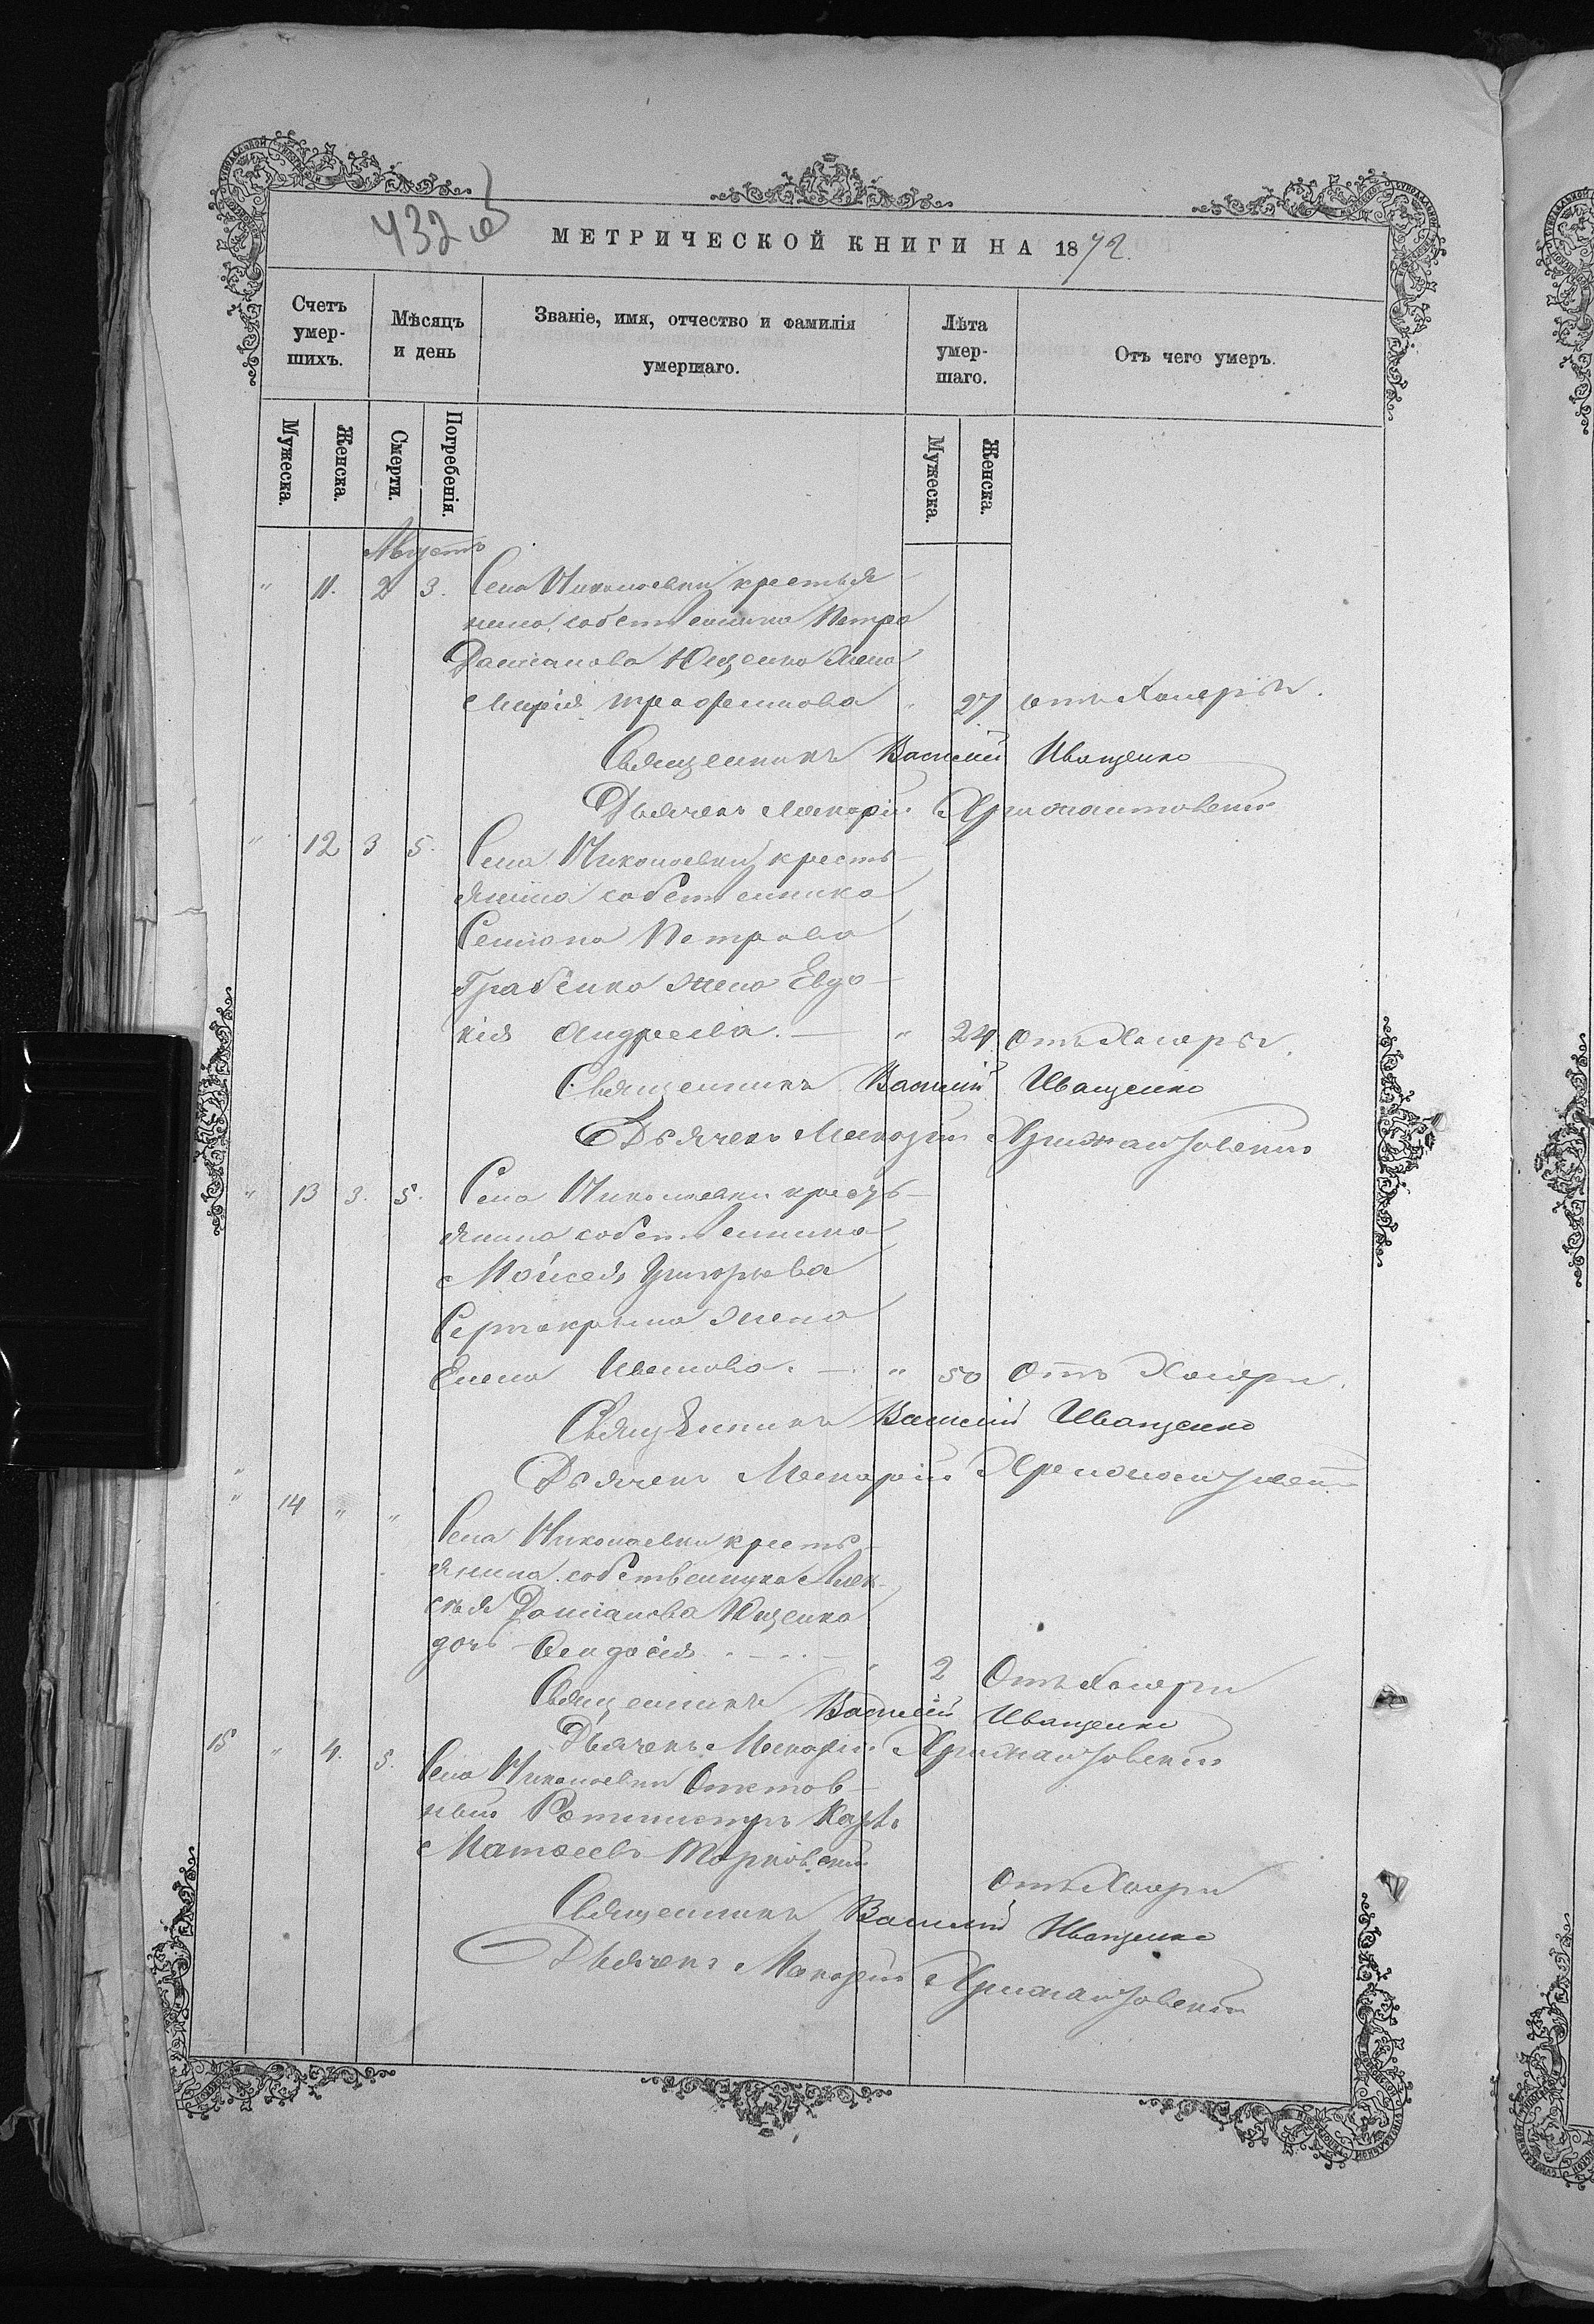 432 об
МЕТРИЧЕСКОЙ КНИГИ НА 1872.
Счетъ умер-шихъ.
Мѣсяцъ и день
Званіе, имя, отчество и фамилія умершаго.
Лѣта умер-шаго.
Отъ чего умеръ.
Мужеска. Женска. Смерти. Погребенія. Мужеска. Женска.
Августъ
" 11. 2 3. Села Николаевки крестья
нина собственника Петра
Даміанова Ющенко жена
Марія Трофимова " 27 отъ Холеры.
Священникъ Василий Иващенко
Дьячекъ Макарій
" 12 3 5. Села Николаевки кресть-
янина собственника
Семіона Петрова
Грабенко жена Евдо-
кія Андреева. — " 24 Отъ Холеры.
Священникъ Василий Иващенко
Дьячекъ Макарій
" 13 3. 5. Села Николаевки кресть-
янина собственника
Моисея Григорьева
жена
Елена Иванова. — " 50 Отъ Холеры.
Священникъ Василий Иващенко
Дьячекъ Макарій
" 14 " " Села Николаевки кресть-
янина собственника Алек-
сѣя Даміанова Ющенко
дочь Феодосія. — . . — 2 Отъ Холеры
Священникъ Василий Иващенко
Дьячекъ Макарій
15 " 4. 5. Села Николаевки Отстав-
ный Ротмистръ Карлъ
Матѳеевъ
Отъ Холеры
Священникъ Василий Иващенко
Дьячекъ Макарій